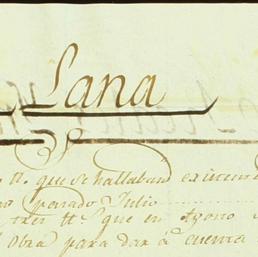 Lana
tt.s que se hallaban existen
pasado Julio
tres tt.s que en Agono
Obra para dar á cuenta